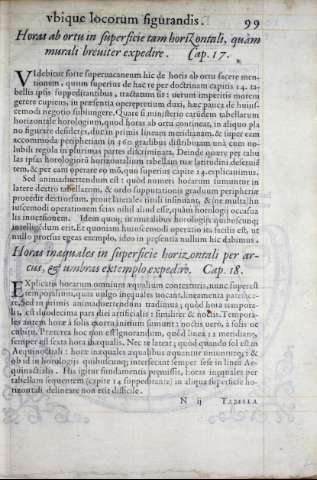 vbique locorum figurandis. 99
Horas ab ortu in superficie tam horizontali, quàm
murali breuiter expedire. Cap. 17.
VIdebitur forte superuacaneum hic de horis ab ortu facere men-
tionem, quum superius de hac re per doctrinam capitis 14. ta-
bellis ipsis suppeditantibus, traditum sit: verum imperitis morem
gerere cupiens, in præsentia operæpretium duxi, hæc pauca de huius-
cemodi negotio subiungere. Quare si ministerio earundem tabellarum
horizontale horologium, quod horas ab ortu contineat, in aliquo pla
no figurare desideres, duc in primis lineam meridianam, & super eam
accommoda peripheriam in 360 gradibus distributam vnà cum vo-
lubili regula in plurimas partes discriminata. Deinde quære per tabu
las ipsas horologiorū horizontalium tabellam tuæ latitudini deseruiē
tem, & per eam operare eo mō, quo superius capite 14. explicauimus.
Sed animaduertendum est: quòd numeri horarum sumuntur in
latere dextro tabellarum, & ordo supputationis graduum peripheriæ
procedit dextrorsum, prout laterales tituli insinuant, & sic multa in
iuscemodi operationem scias nihil aliud esse, quàm horologij occasus
lis inuersionem. Idem quoq; in muralibus horologijs quibuscunq;
intelligēdum erit. Et quoniam huiuscemodi operatio ita facilis est, vt
nullo prorsus egeas exemplo, ideo in præsentia nullum hic dabimus.
Horas inæquales in superficie horizontali per ar-
cus, & umbras extemplo expedire. Cap. 18.
EXplicitis horarum omnium æqualium contextitis, nunc superest
temporalium, quas vulgo inæquales vocant, lineamenta patefice-
re. Sed in primis animaduertendum tradimus, quòd hora tempora-
lis, est duodecima pars diei artificialis: similiter & noctis. Temporā-
les autem horæ à solis exortu initium sumunt: noctis verò, à solis oc
casu. Præterea hoc non est ignorandum, quòd linea 12 meridiana,
semper est sexta hora inæqualis. Nec te lateat: quòd quando sol est in
Aequinoctiali: horæ inæquales æqualibus æquantur inuicem: &
quòd in horologijs quibuscunq; intersecant semper sese in linea Ae-
quinoctialis. His igitur fundamentis præmissis, horas inæquales per
tabellam sequentem (capite 14 suppeditante) in aliqua superficie ho-
rizontali delineare non erit difficile.
N ij TABELLA